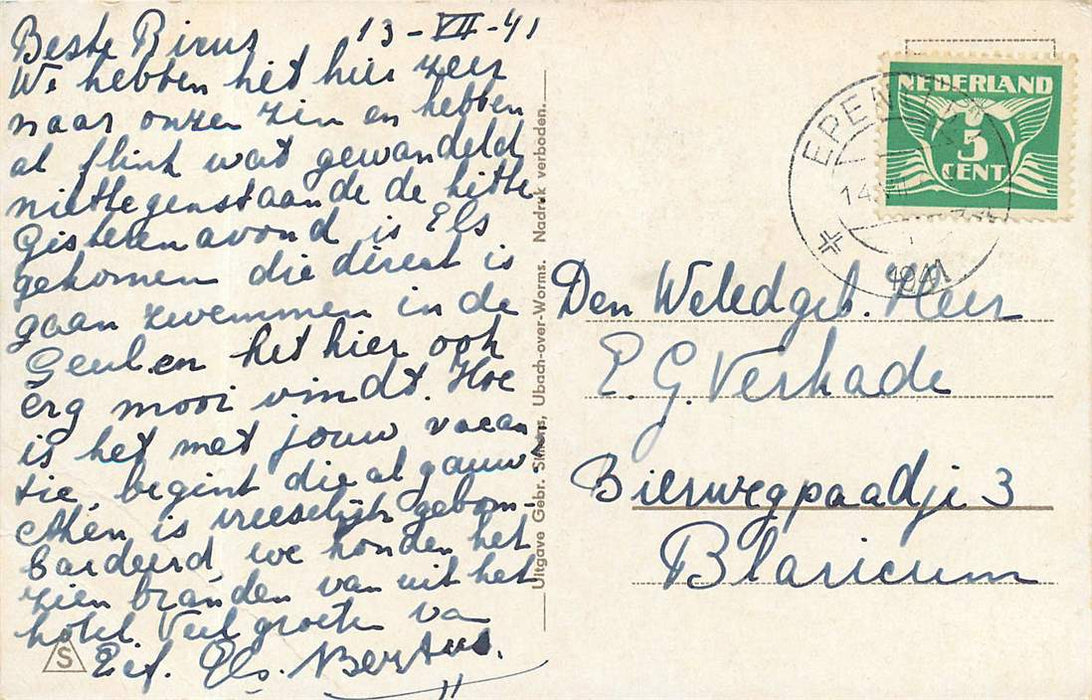 Beste Picus 13-VII-41
We hebben het hier zeer
naar onzen zin en hebben
al flink wat gewandeld
niettegenstaande de hitte
Gisteren avond is Els
gekomen die direct is
gaan zwemmen in de
Geul en het hier ook
erg mooi vindt. Hoe
is het met jouw vacan
tie, begint die al gauw
Aken is vreeselijk gebom-
bardeerd, we konden het
zien branden van uit het
hotel. Veel groeten van
Els. Bertus.
S
Uitgave Gebr. Simons, Ubach-over-Worms. Nadruk verboden.
NEDERLAND
5
CENT
EPEN
14 VII
1941
Den Weledgeb. Heer
E. G. Verkade
Bierwegpaadje 3
Blaricum